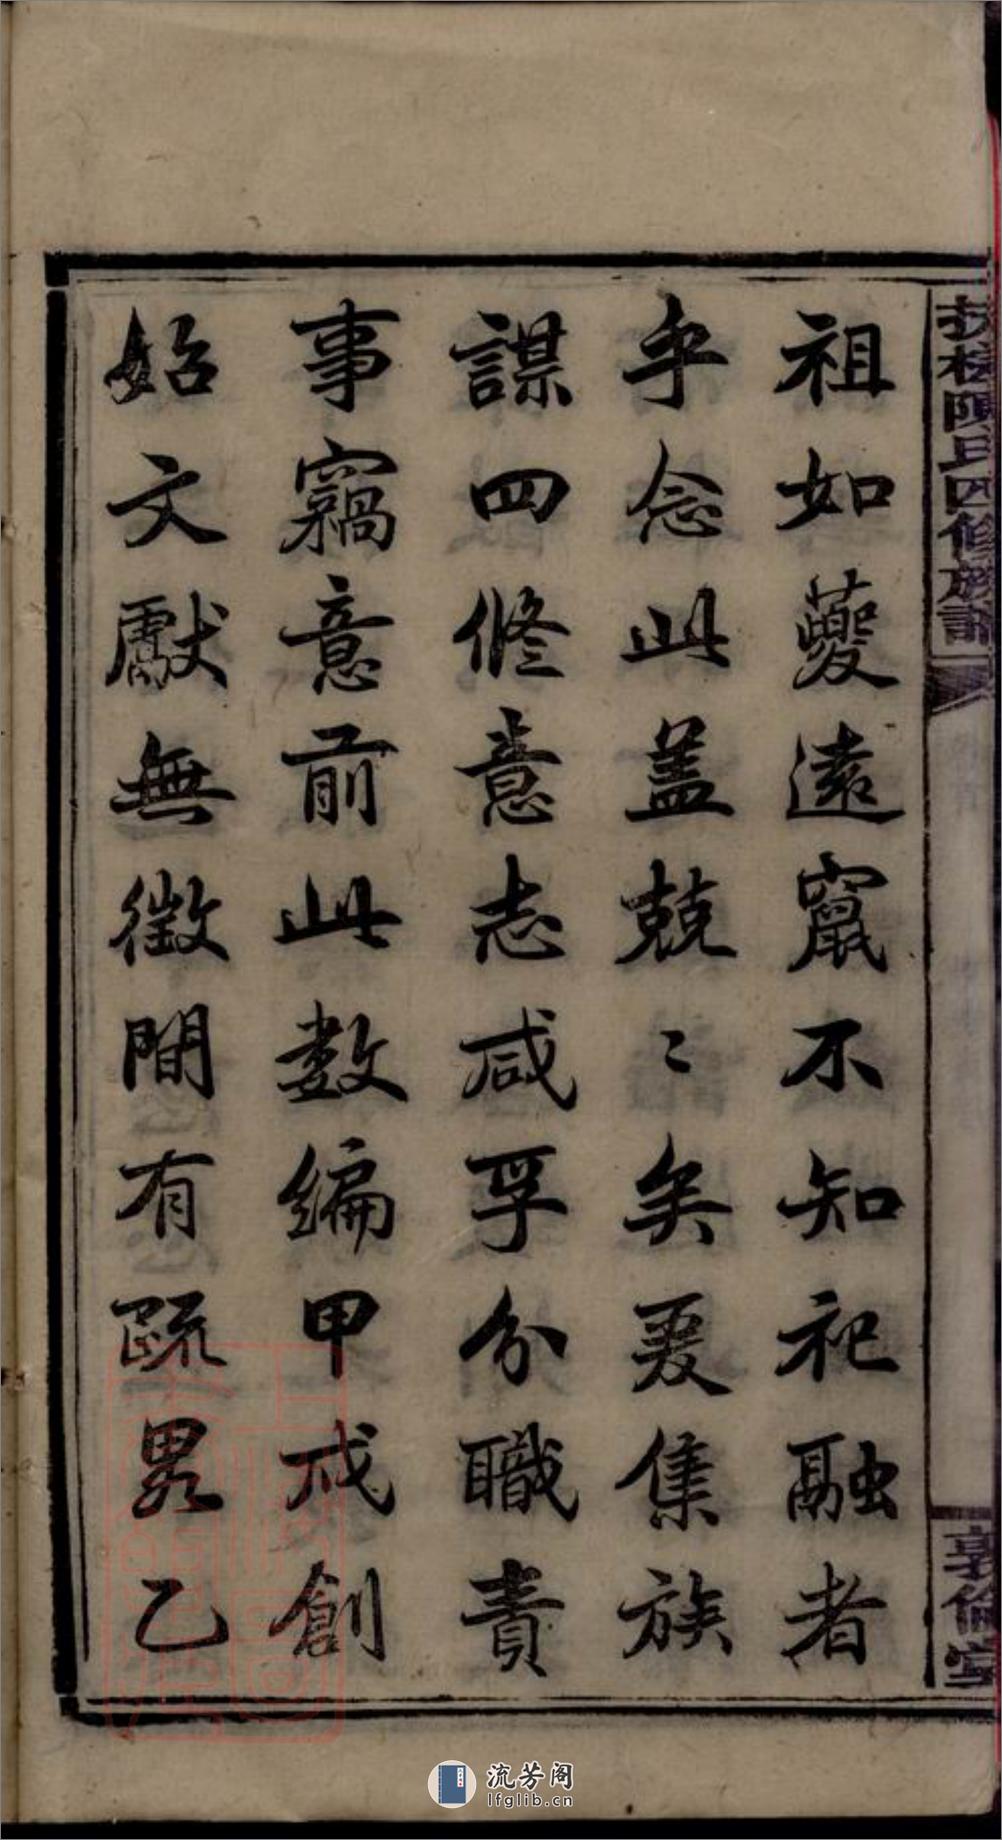 陳氏四修族譜
敦倫堂
祖如夔遠竄不知祀融者
乎念此盖兢〻矣爰集族
謀四修意志咸孚分職責
事竊意前此數編甲戌創
始文獻無徵間有疏畧乙
流芳阁
lfglib.cn